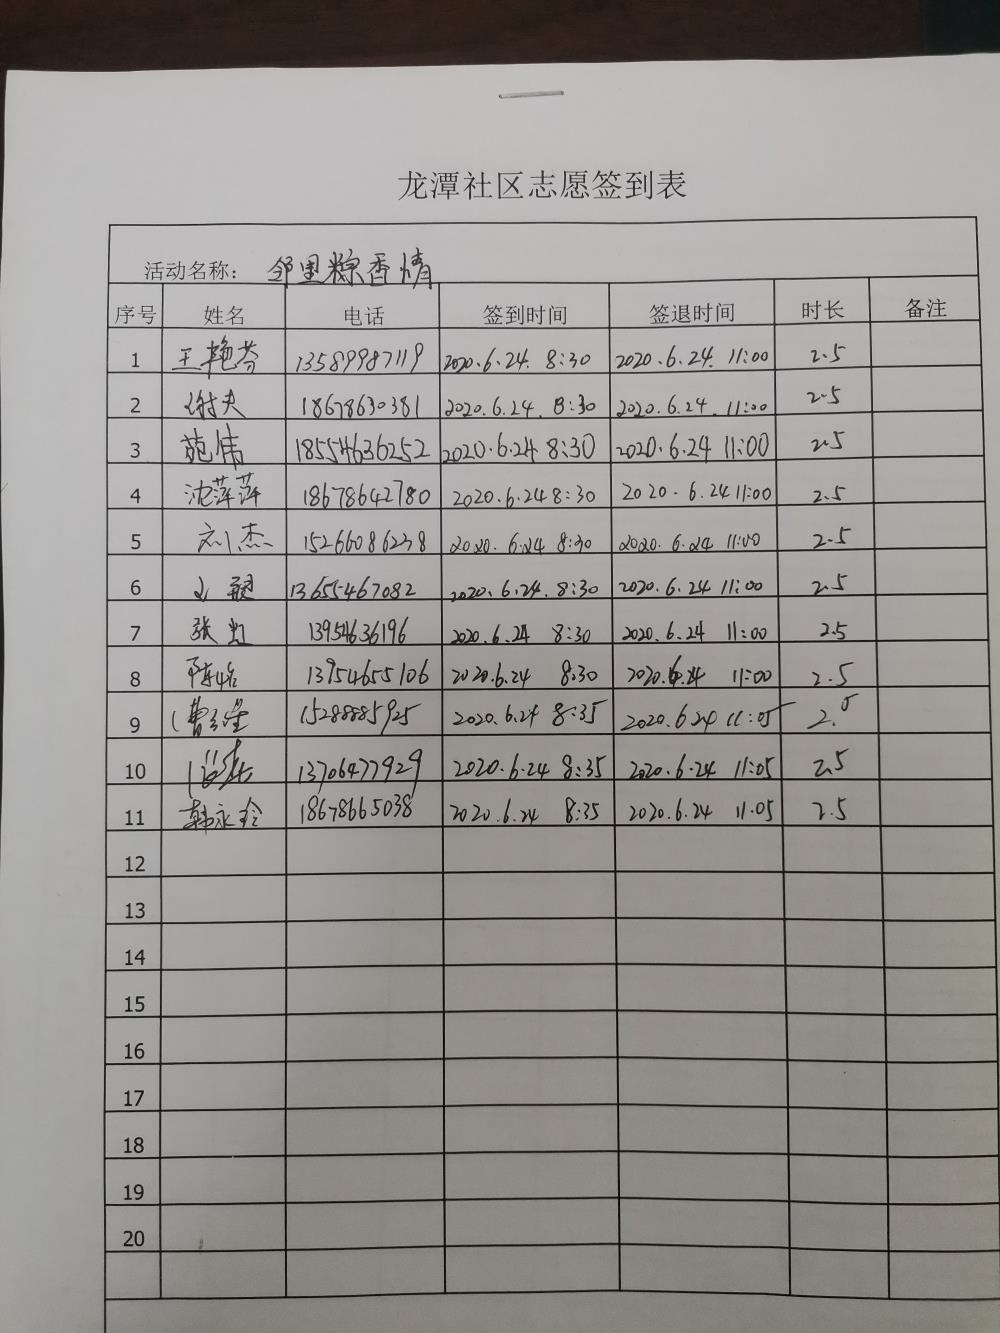 龙潭社区志愿签到表
活动名称: 邻里粽香情
序号 姓名 电话 签到时间 签退时间 时长 备注
1 王艳芬 13589987119 2020.6.24. 8:30 2020.6.24. 11:00 2.5
2 谢夫 18678630381 2020.6.24. 8:30 2020.6.24. 11:00 2.5
3 苑伟 18554636252 2020.6.24 8:30 2020.6.24 11:00 2.5
4 沈萍萍 18678642780 2020.6.24 8:30 2020.6.24 11:00 2.5
5 刘杰 15266086238 2020.6.24 8:30 2020.6.24 11:00 2.5
6 13655467082 2020.6.24. 8:30 2020.6.24 11:00 2.5
7 张虹 13954636196 2020.6.24 8:30 2020.6.24 11:00 2.5
8 陈娟 13954655106 2020.6.24 8:30 2020.6.24 11:00 2.5
9 15288885925 2020.6.24 8:35 2020.6.24 11:05 2.5
10 13706477929 2020.6.24 8:35 2020.6.24 11:05 2.5
11 韩永玲 18678665038 2020.6.24 8:35 2020.6.24 11:05 2.5
12
13
14
15
16
17
18
19
20